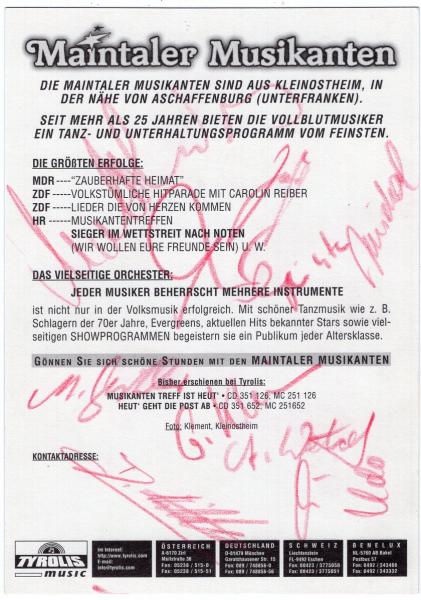 Maintaler Musikanten
DIE MAINTALER MUSIKANTEN SIND AUS KLEINOSTHEIM, IN
DER NÄHE VON ASCHAFFENBURG (UNTERFRANKEN).
SEIT MEHR ALS 25 JAHREN BIETEN DIE VOLLBLUTMUSIKER
EIN TANZ- UND UNTERHALTUNGSPROGRAMM VOM FEINSTEN.
DIE GRÖßTEN ERFOLGE:
MDR ----"ZAUBERHAFTE HEIMAT"
ZDF -----VOLKSTÜMLICHE HITPARADE MIT CAROLIN REIBER
ZDF -----LIEDER DIE VON HERZEN KOMMEN
HR ------MUSIKANTENTREFFEN
SIEGER IM WETTSTREIT NACH NOTEN
(WIR WOLLEN EURE FREUNDE SEIN) U. W.
DAS VIELSEITIGE ORCHESTER:
JEDER MUSIKER BEHERRSCHT MEHRERE INSTRUMENTE
ist nicht nur in der Volksmusik erfolgreich. Mit schöner Tanzmusik wie z. B.
Schlagern der 70er Jahre, Evergreens, aktuellen Hits bekannter Stars sowie viel-
seitigen SHOWPROGRAMMEN begeistern sie ein Publikum jeder Altersklasse.
GÖNNEN SIE SICH SCHÖNE STUNDEN MIT DEN MAINTALER MUSIKANTEN
Bisher erschienen bei Tyrolis:
MUSIKANTEN TREFF IST HEUT' • CD 351 126, MC 251 126
HEUT' GEHT DIE POST AB • CD 651 652, MC 251652
Foto: Klement, Kleinostheim
KONTAKTADRESSE:
Udo
TYROLIS
music
Im Internet:
http://www.tyrolis.com
E-mail:
info@tyrolis.com
ÖSTERREICH
A-6170 Zirl
Meilstraße 36
Fon: 05238 / 515-0
Fax: 05238 / 515-51
DEUTSCHLAND
D-81679 München
Gerathauser Str. 15
Fon: 089 / 748856-0
Fax: 089 / 748856-56
SCHWEIZ
Liechtenstein
FL-9492 Eschen
Fon: 00423 / 3775058
Fax: 00423 / 3775051
BENELUX
NL-5760 AB Bakel
Postbus 57
Fon: 0492 / 343460
Fax: 0492 / 343332